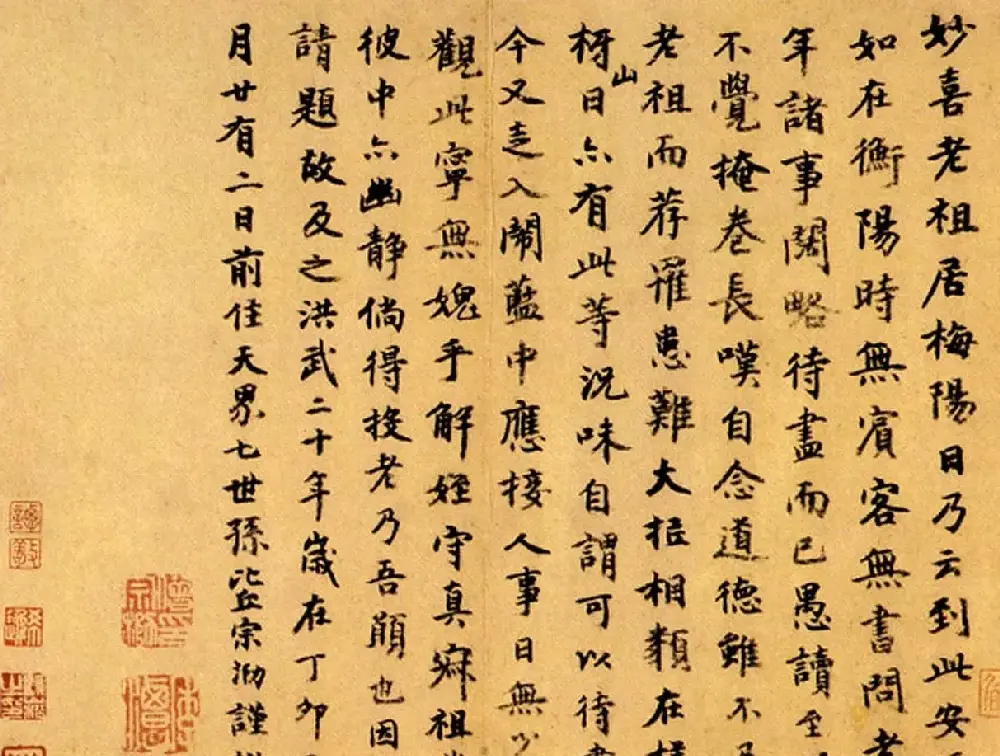 妙喜老祖居梅陽日乃云到此安
如在衡陽時無賓客無書問老
年諸事闊略待盡而已愚讀至
不覺掩卷長嘆自念道德雖不
老祖而荐罹患難大抵相類在
枬山日亦有此等況味自謂可以待
今又走入鬧藍中應接人事日無少
觀此寧無媿乎解姪守真寂祖
彼中亦幽靜倘得投老乃吾願也因
請題故及之洪武二十年歲在丁卯
月廿有二日前住天界七世孫比丘宗泐謹